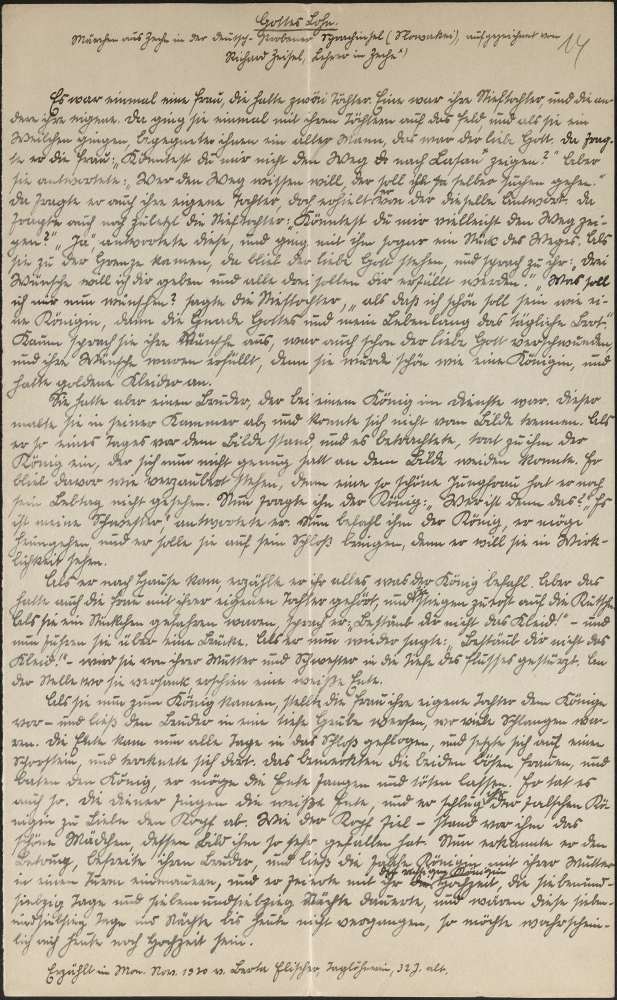 Gottes Lohn.
Märchen aus Zeche in der deutsch-Probener Sprachinsel (Slowakei), aufgezeichnet von
Richard Zeisel, Lehrer in Zeche
14
Es war einmal eine Frau, die hatte zwei Töchter. Eine war ihre Stieftochter, und die an-
dere ihre eigene. Da ging sie einmal mit ihren Töchtern auf das Feld und als sie ein
Weilchen gingen, begegneter ihnen ein alter Mann, das war der liebe Gott. Da frag-
te er die Frau: „Könntest du mir nicht den Weg nach Lasau zeigen?" Aber
sie antwortete: „Wer den Weg wissen will, der soll ihn selber suchen gehen."
Da fragte er auch ihre eigene Tochter, doch erhielt von der dieselbe Antwort. Da
fragte auch noch zuletzt die Stieftochter: „Könntest du mir vielleicht den Weg zei-
gen?" „Ja", antwortete diese, und ging mit ihm sogar ein Stück des Weges. Als
sie zu der Grenze kamen, da blieb der liebe Gott stehen, und sprach zu ihr: „Drei
Wünsche will ich dir geben und alle drei sollen dir erfüllt werden." „Was soll
ich mir nun wünschen? sagte die Stieftochter, „als daß ich schön soll sein wie ei-
ne Königin, dann die Gnade Gottes und mein Lebenlang das tägliche Brot."
Kaum sprach sie ihre Wünsche aus, war auch schon der liebe Gott verschwunden,
und ihre Wünsche waren erfüllt, denn sie wurde schön wie eine Königin, und
hatte goldene Kleider an.
Sie hatte aber einen Bruder, der bei einem König im Dienste war. Dieser
malte sie in seiner Kammer ab, und konnte sich nicht vom Bilde trennen. Als
er so eines Tages vor dem Bilde stand und es betrachtete, trat zu ihm der
König ein, der sich nun nicht genug satt an dem Bilde weiden konnte. Er
blieb davor wie verzaubert stehen, denn eine so schöne Jungfrau hat er noch
sein Lebtag nicht gesehen. Nun fragte ihn der König: „Wer ist denn das?" „Es
ist meine Schwester" antwortete er. Nun befahl ihm der König, er möge
heimgehen und er solle sie auf sein Schloß bringen, denn er will sie in Wirk-
lichkeit sehen.
Als er nach Hause kam, erzählte er ihr alles was der König befahl. Aber das
hatte auch die Frau mit ihrer eigenen Tochter gehört, und stiegen zuerst auf die Kutsche.
Als sie ein Stückchen gefahren waren, sprach er: „Bestäub dir nicht das Kleid!" – und
nun fuhren sie über eine Brücke. Als er nun wieder sagte: „Bestäub dir nicht das
Kleid!" – wird sie von ihrer Mutter und Schwester in die Tiefe des Flusses gestürzt. An
der Stelle wo sie versank erschien eine weiße Ente.
Als sie nun zum König kamen, stellte die Frau ihre eigene Tochter dem Könige
vor – und ließ den Bruder in eine tiefe Grube werfen, wo viele Schlangen wa-
ren. Die Ente kam nun alle Tage in das Schloß geflogen, und setzte sich auf einen
Schorstein, und trocknete sich dort. Das bemerkten die beiden bösen Frauen, und
baten den König, er möge die Ente fangen und töten lassen. Er tat es
auch so. Die Diener fingen die weiße Ente, und er schlug der falschen Kö-
nigin zu Liebe den Kopf ab. Wie der Kopf fiel – stand vor ihm das
schöne Mädchen, dessen Bild ihm so sehr gefallen hat. Nun erkannte er den
Betrug, befreite ihren Bruder, und ließ die falsche Königin mit ihrer Mutter
in einen Turm einmauern, und er feierte mit der richtigen Königin Hochzeit, die siebenund-
siebzig Tage und siebenundsiebzig Nächte dauerte, und wären diese sieben-
undsiebzig Tage und Nächte bis heute nicht vergangen, so möchte wahrschein-
lich auch heute noch Hochzeit sein.
Erzählt im Mon. Nov. 1930 v. Berta Elischer, Taglöhnerin, 32 J. alt.